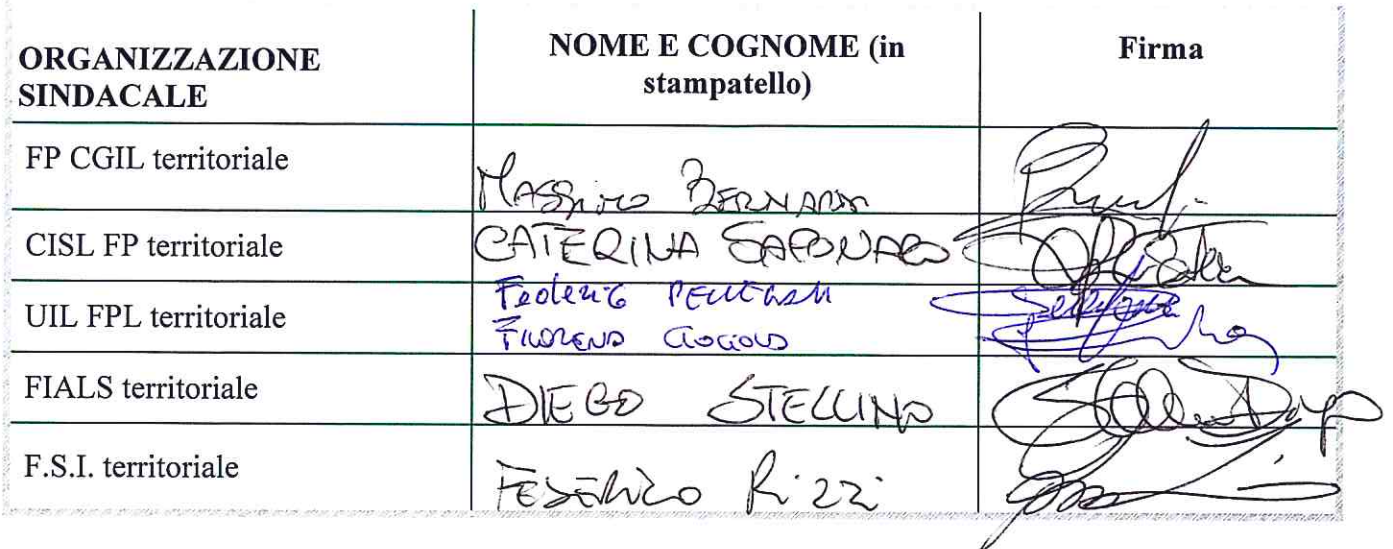 ORGANIZZAZIONE
SINDACALE
NOME E COGNOME (in
stampatello)
Firma
FP CGIL territoriale
MASSIMO BERNARDI
CISL FP territoriale
CATERINA SAPONARO
UIL FPL territoriale
Federico
FIORENZO
FIALS territoriale
DIEGO STELLINO
F.S.I. territoriale
FEDERICO Rizzi